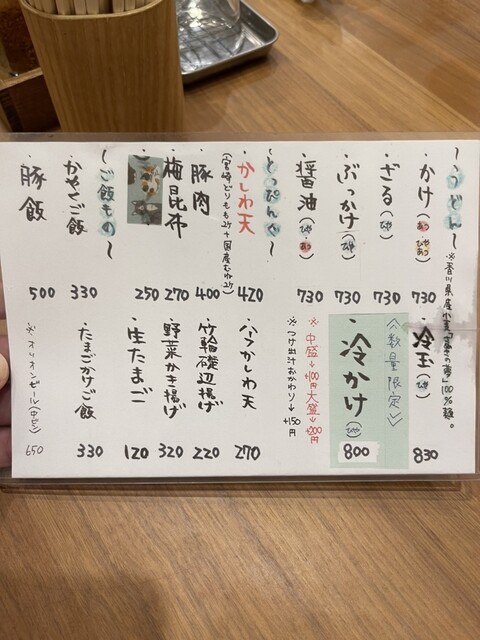 〜うどん〜
※香川県産小麦「さぬきの夢」100%麺。
・かけ(あつ)(ひやあつ) 730
・ざる(ひや) 730
・ぶっかけ(ひや) 730
・醤油(ひや・あつ) 730
・冷玉(ひや) 830
<数量限定>
・冷かけ(ひや) 800
※中盛→+100円 大盛→+200円
※つけ出汁おかわり→+150円
〜とっぴんぐ〜
・かしわ天 420
(宮崎どりもも2ケ+国産むね2ケ)
・豚肉 400
・梅昆布 270
250
・ハーフかしわ天 270
・竹輪磯辺揚げ 220
・野菜かき揚げ 320
・生たまご 120
〜ご飯もの〜
・かやくご飯 330
・豚飯 500
・たまごかけご飯 330
※オリオンビール(中ビン) 650